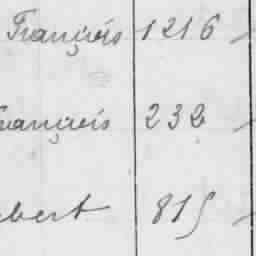 François 1216
rançois 232
bert 815